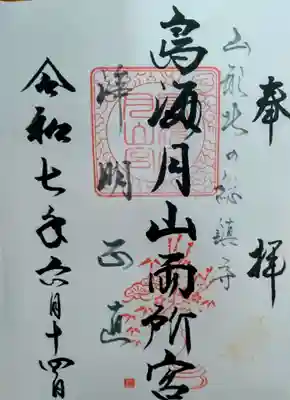 奉拝
山形北の総鎮守
鳥海月山両所宮
浄明正直
令和七年六月十四日